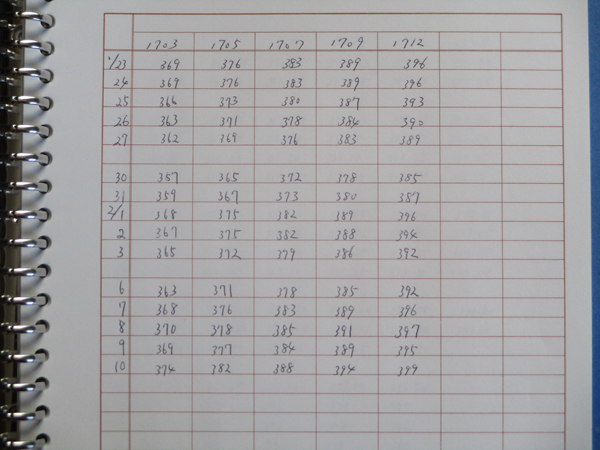 1703 1705 1707 1709 1712
1/23 369 376 383 389 396
24 369 376 383 389 396
25 366 373 380 387 393
26 363 371 378 384 390
27 362 369 376 383 389
30 357 365 372 378 385
31 359 367 373 380 387
2/1 368 375 382 389 396
2 367 375 382 388 394
3 365 372 379 386 392
6 363 371 378 385 392
7 368 376 383 389 396
8 370 378 385 391 397
9 369 377 384 389 395
10 374 382 388 394 399